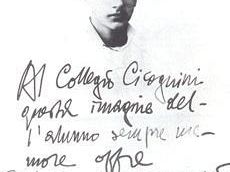 Al Collegio Cicognini
questa imagine del-
l'alunno sempre me-
more offre